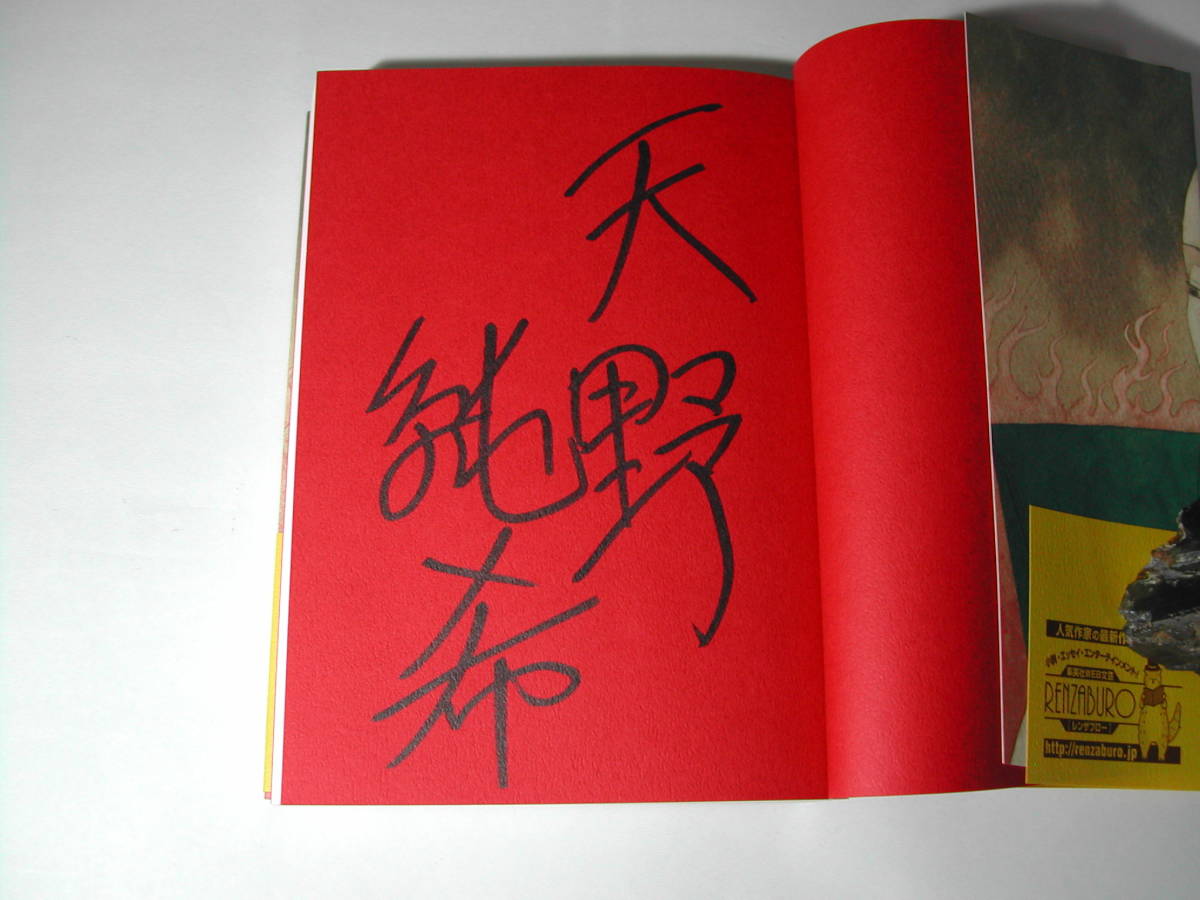 天野
純希
人気作家の最新作
小説・エッセイ・エンターテインメント!
集英社WEB文芸
RENZABURO
レンザブロー
http://renzaburo.jp